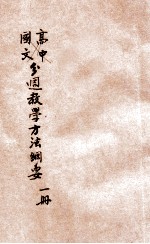 高中
國文分週教學方法綱要一冊